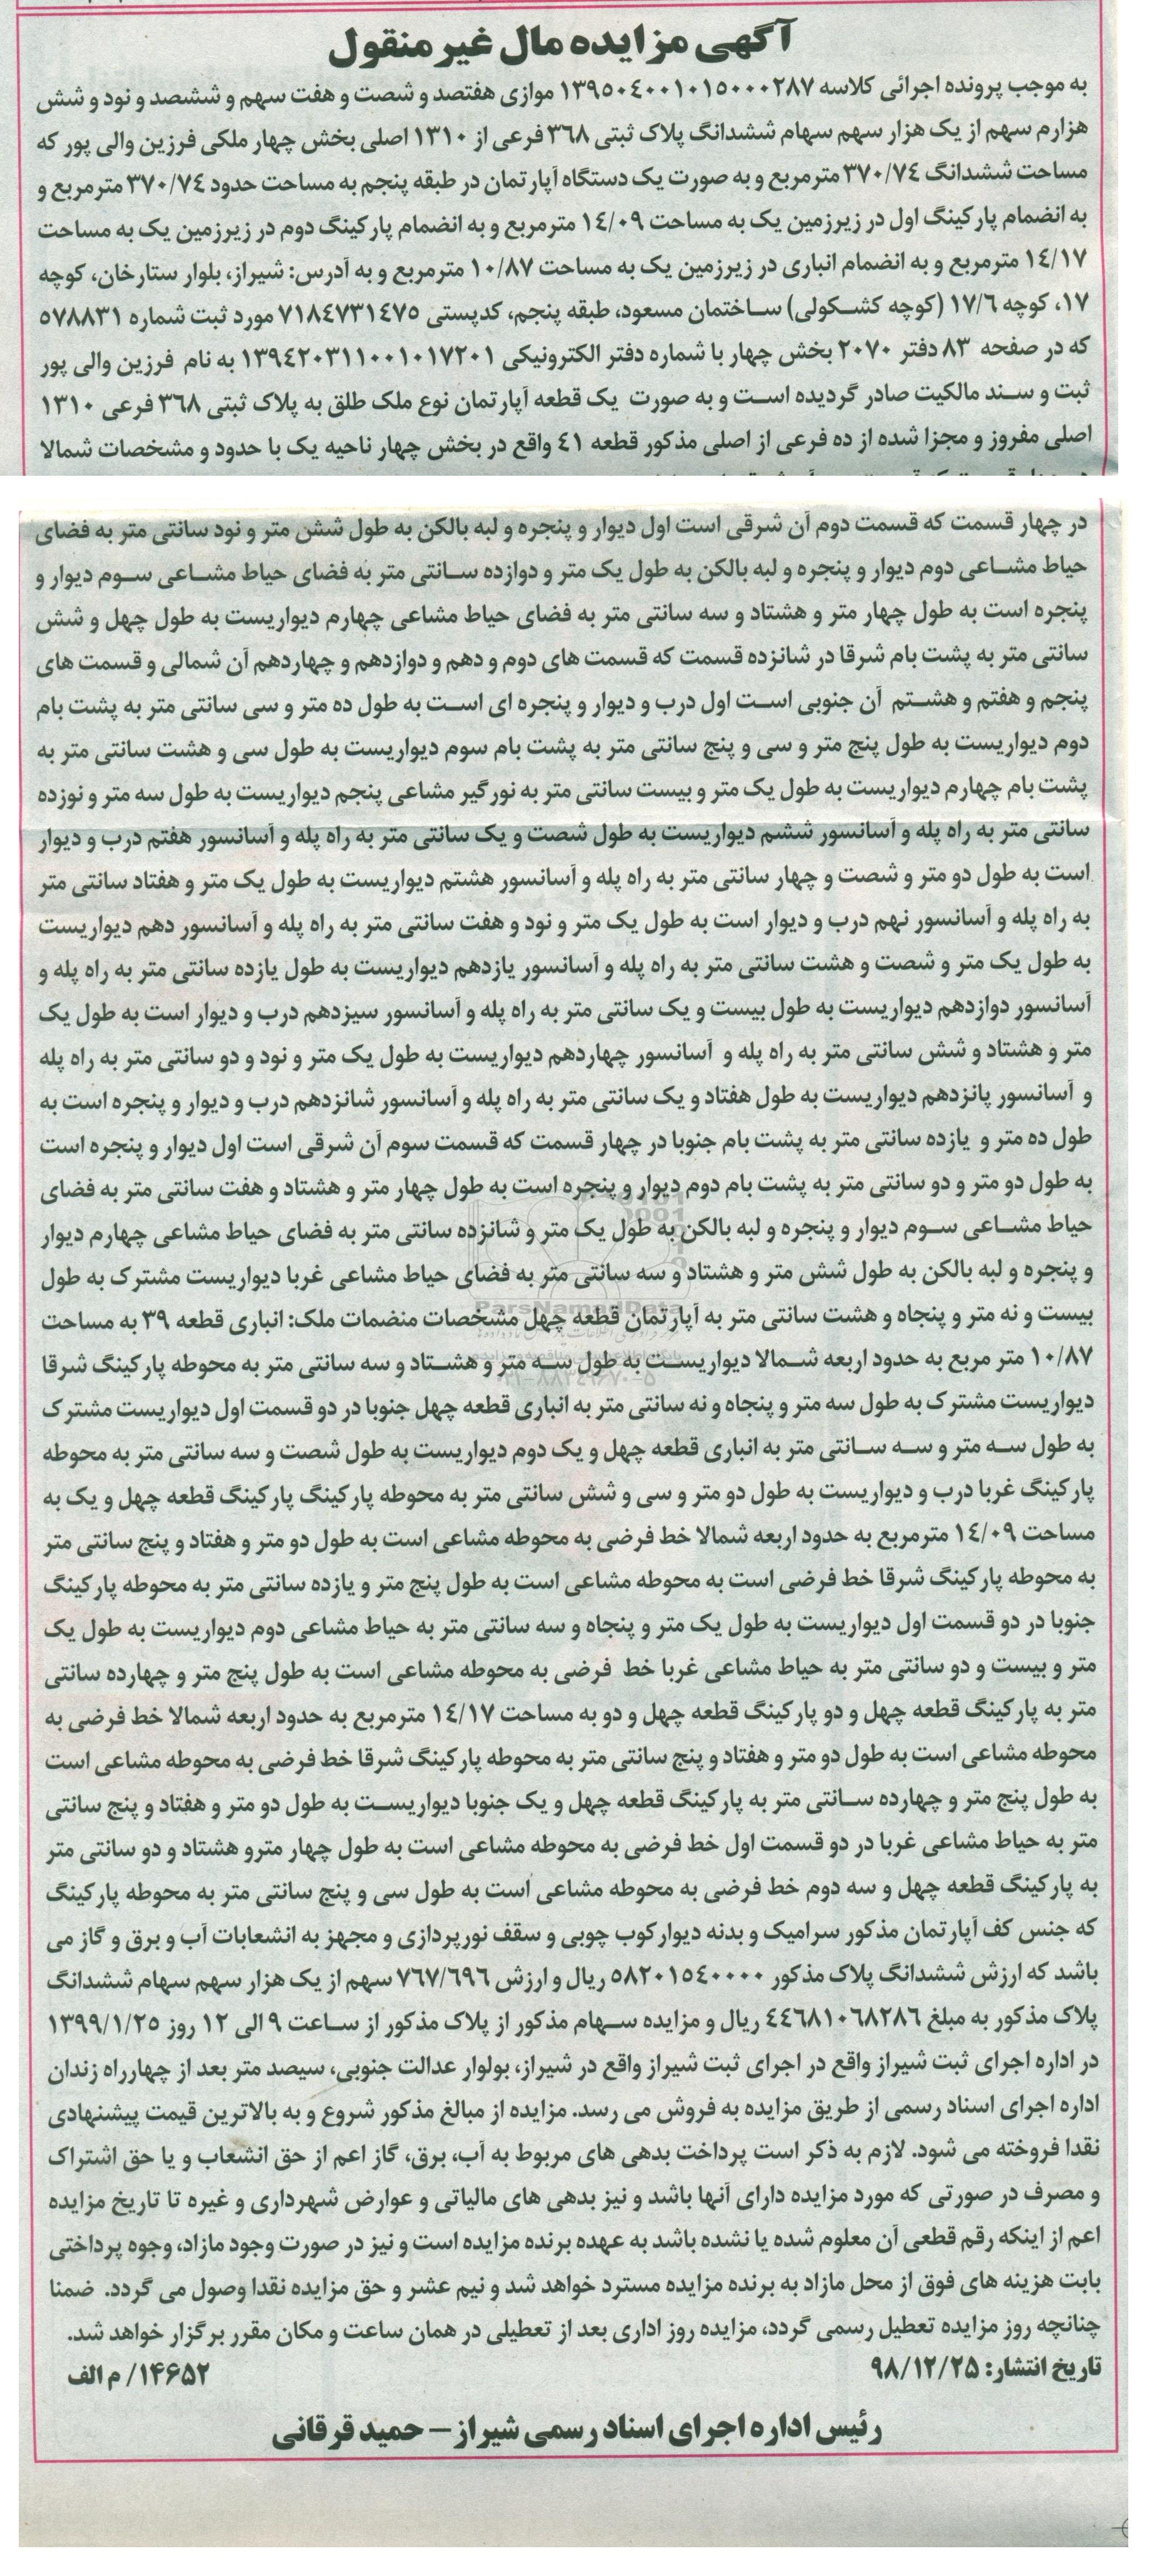 آگهی مزایده مال غیر منقول
به موجب پرونده اجرائی کلاسه ۱۳۹۵۰۴۰۰۱۰۱۵۰۰۰۲۸۷ موازی هفتصد و شصت و هفت سهم و ششصد و نود و شش
هزارم سهم از یک هزار سهم سهام ششدانگ پلاک ثبتی ۳۶۸ فرعی از ۱۳۱۰ اصلی بخش چهار ملکی فرزین والی پور که
مساحت ششدانگ ۳۷۰/۷۴ مترمربع و به صورت یک دستگاه آپارتمان در طبقه پنجم به مساحت حدود ۳۷۰/۷۴ مترمربع و
به انضمام پارکینگ اول در زیرزمین یک به مساحت ۱۴/۰۹ مترمربع و به انضمام پارکینگ دوم در زیرزمین یک به مساحت
۱۴/۱۷ مترمربع و به انضمام انباری در زیرزمین یک به مساحت ۱۰/۸۷ مترمربع و به آدرس: شیراز، بلوار ستارخان، کوچه
۱۷، کوچه ۱۷/۶ (کوچه کشکولی) ساختمان مسعود، طبقه پنجم، کدپستی ۷۱۸۴۷۳۱۴۷۵ مورد ثبت شماره ۵۷۸۸۳۱
که در صفحه ۸۳ دفتر ۲۰۷۰ بخش چهار با شماره دفتر الکترونیکی ۱۳۹۴۲۰۳۱۱۰۰۱۰۱۷۲۰۱ به نام فرزین والی پور
ثبت و سند مالکیت صادر گردیده است و به صورت یک قطعه آپارتمان نوع ملک طلق به پلاک ثبتی ۳۶۸ فرعی ۱۳۱۰
اصلی مفروز و مجزا شده از ده فرعی از اصلی مذکور قطعه ۴۱ واقع در بخش چهار ناحیه یک با حدود و مشخصات شمالا
در چهار قسمت که قسمت دوم آن شرقی است اول دیوار و پنجره و لبه بالکن به طول شش متر و نود سانتی متر به فضای
حیاط مشاعی دوم دیوار و پنجره و لبه بالکن به طول یک متر و دوازده سانتی متر به فضای حیاط مشاعی سوم دیوار و
پنجره است به طول چهار متر و هشتاد و سه سانتی متر به فضای حیاط مشاعی چهارم دیواریست به طول چهل و شش
سانتی متر به پشت بام شرقا در شانزده قسمت که قسمت های دوم و دهم و دوازدهم و چهاردهم آن شمالی و قسمت های
پنجم و هفتم و هشتم آن جنوبی است اول درب و دیوار و پنجره ای است به طول ده متر و سی سانتی متر به پشت بام
دوم دیواریست به طول پنج متر و سی و پنج سانتی متر به پشت بام سوم دیواریست به طول سی و هشت سانتی متر به
پشت بام چهارم دیواریست به طول یک متر و بیست سانتی متر به نورگیر مشاعی پنجم دیواریست به طول سه متر و نوزده
سانتی متر به راه پله و آسانسور ششم دیواریست به طول شصت و یک سانتی متر به راه پله و آسانسور هفتم درب و دیوار
است به طول دو متر و شصت و چهار سانتی متر به راه پله و آسانسور هشتم دیواریست به طول یک متر و هفتاد سانتی متر
به راه پله و آسانسور نهم درب و دیوار است به طول یک متر و نود و هفت سانتی متر به راه پله و آسانسور دهم دیواریست
به طول یک متر و شصت و هشت سانتی متر به راه پله و آسانسور یازدهم دیواریست به طول یازده سانتی متر به راه پله و
آسانسور دوازدهم دیواریست به طول بیست و یک سانتی متر به راه پله و آسانسور سیزدهم درب و دیوار است به طول یک
متر و هشتاد و شش سانتی متر به راه پله و آسانسور چهاردهم دیواریست به طول یک متر و نود و دو سانتی متر به راه پله
و آسانسور پانزدهم دیواریست به طول هفتاد و یک سانتی متر به راه پله و آسانسور شانزدهم درب و دیوار و پنجره است به
طول ده متر و یازده سانتی متر به پشت بام جنوبا در چهار قسمت که قسمت سوم آن شرقی است اول دیوار و پنجره است
به طول دو متر و دو سانتی متر به پشت بام دوم دیوار و پنجره است به طول چهار متر و هشتاد و هفت سانتی متر به فضای
حیاط مشاعی سوم دیوار و پنجره و لبه بالکن به طول یک متر و شانزده سانتی متر به فضای حیاط مشاعی چهارم دیوار
و پنجره و لبه بالکن به طول شش متر و هشتاد و سه سانتی متر به فضای حیاط مشاعی غربا دیواریست مشترک به طول
بیست و نه متر و پنجاه و هشت سانتی متر به آپارتمان قطعه چهل مشخصات منضمات ملک: انباری قطعه ۳۹ به مساحت
۱۰/۸۷ متر مربع به حدود اربعه شمالا دیواریست به طول سه متر و هشتاد و سه سانتی متر به محوطه پارکینگ شرقا
دیواریست مشترک به طول سه متر و پنجاه و نه سانتی متر به انباری قطعه چهل جنوبا در دو قسمت اول دیواریست مشترک
به طول سه متر و سه سانتی متر به انباری قطعه چهل و یک دوم دیواریست به طول شصت و سه سانتی متر به محوطه
پارکینگ غربا درب و دیواریست به طول دو متر و سی و شش سانتی متر به محوطه پارکینگ پارکینگ قطعه چهل و یک به
مساحت ۱۴/۰۹ مترمربع به حدود اربعه شمالا خط فرضی به محوطه مشاعی است به طول دو متر و هفتاد و پنج سانتی متر
به محوطه پارکینگ شرقا خط فرضی است به محوطه مشاعی است به طول پنج متر و یازده سانتی متر به محوطه پارکینگ
جنوبا در دو قسمت اول دیواریست به طول یک متر و پنجاه و سه سانتی متر به حیاط مشاعی دوم دیواریست به طول یک
متر و بیست و دو سانتی متر به حیاط مشاعی غربا خط فرضی به محوطه مشاعی است به طول پنج متر و چهارده سانتی
متر به پارکینگ قطعه چهل و دو پارکینگ قطعه چهل و دو به مساحت ۱۴/۱۷ مترمربع به حدود اربعه شمالا خط فرضی به
محوطه مشاعی است به طول دو متر و هفتاد و پنج سانتی متر به محوطه پارکینگ شرقا خط فرضی به محوطه مشاعی است
به طول پنج متر و چهارده سانتی متر به پارکینگ قطعه چهل و یک جنوبا دیواریست به طول دو متر و هفتاد و پنج سانتی
متر به حیاط مشاعی غربا در دو قسمت اول خط فرضی به محوطه مشاعی است به طول چهار مترو هشتاد و دو سانتی متر
به پارکینگ قطعه چهل و سه دوم خط فرضی به محوطه مشاعی است به طول سی و پنج سانتی متر به محوطه پارکینگ
که جنس کف آپارتمان مذکور سرامیک و بدنه دیوارکوب چوبی و سقف نورپردازی و مجهز به انشعابات آب و برق و گاز می
باشد که ارزش ششدانگ پلاک مذکور ۵۸۲۰۱۵۴۰۰۰۰ ریال و ارزش ۷۶۷/۶۹۶ سهم از یک هزار سهم سهام ششدانگ
پلاک مذکور به مبلغ ۴۴۶۸۱۰۶۸۲۸۶ ریال و مزایده سهام مذکور از پلاک مذکور از ساعت ۹ الی ۱۲ روز ۱۳۹۹/۱/۲۵
در اداره اجرای ثبت شیراز واقع در اجرای ثبت شیراز واقع در شیراز، بولوار عدالت جنوبی، سیصد متر بعد از چهارراه زندان
اداره اجرای اسناد رسمی از طریق مزایده به فروش می رسد. مزایده از مبالغ مذکور شروع و به بالاترین قیمت پیشنهادی
نقدا فروخته می شود. لازم به ذکر است پرداخت بدهی های مربوط به آب، برق، گاز اعم از حق انشعاب و یا حق اشتراک
و مصرف در صورتی که مورد مزایده دارای آنها باشد و نیز بدهی های مالیاتی و عوارض شهرداری و غیره تا تاریخ مزایده
اعم از اینکه رقم قطعی آن معلوم شده یا نشده باشد به عهده برنده مزایده است و نیز در صورت وجود مازاد، وجوه پرداختی
بابت هزینه های فوق از محل مازاد به برنده مزایده مسترد خواهد شد و نیم عشر و حق مزایده نقدا وصول می گردد. ضمنا
چنانچه روز مزایده تعطیل رسمی گردد، مزایده روز اداری بعد از تعطیلی در همان ساعت و مکان مقرر برگزار خواهد شد.
تاریخ انتشار: ۹۸/۱۲/۲۵
۱۴۶۵۲/ م الف
رئیس اداره اجرای اسناد رسمی شیراز – حمید قرقانی
ParsNamadData
۰۲۱-۸۸۳۴۹۶۷۰-۵